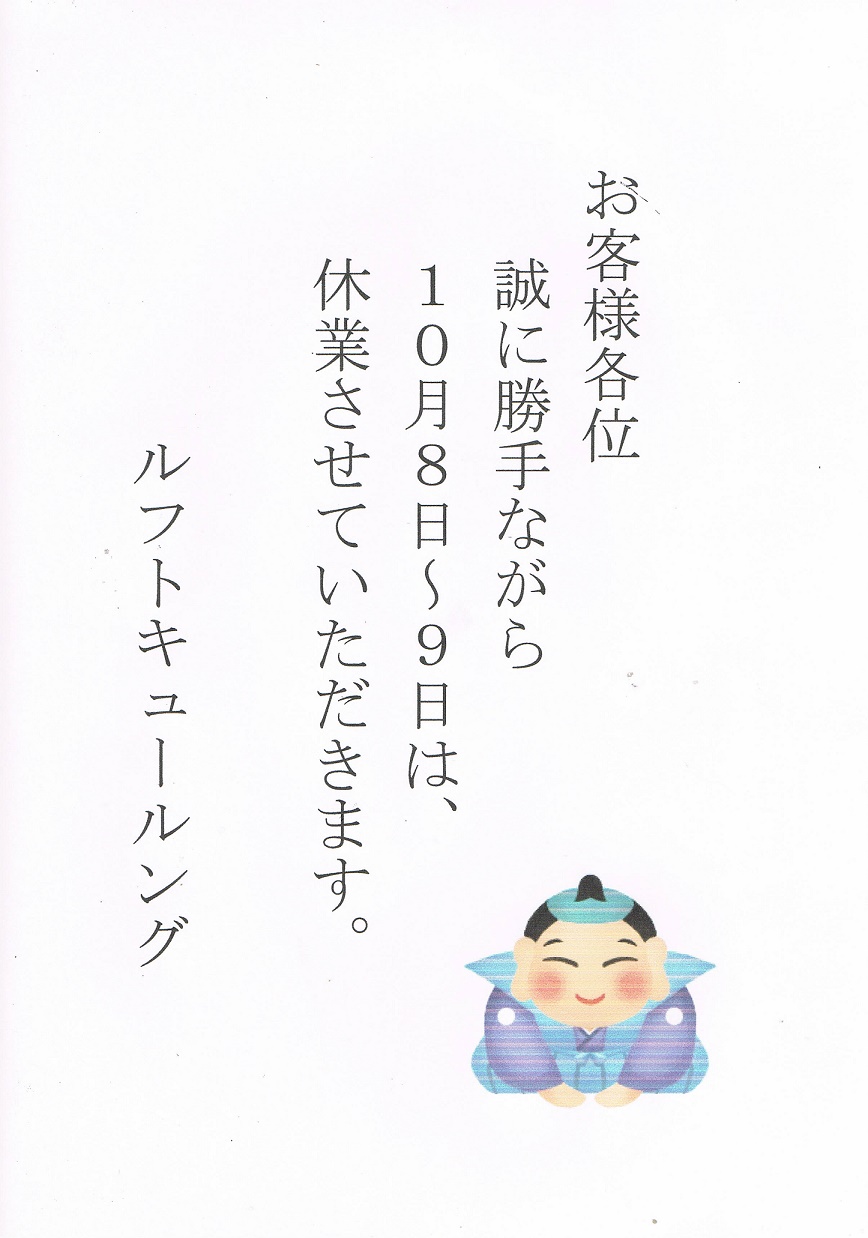 お客様各位
誠に勝手ながら
１０月８日～９日は、
休業させていただきます。
ルフトキュールング